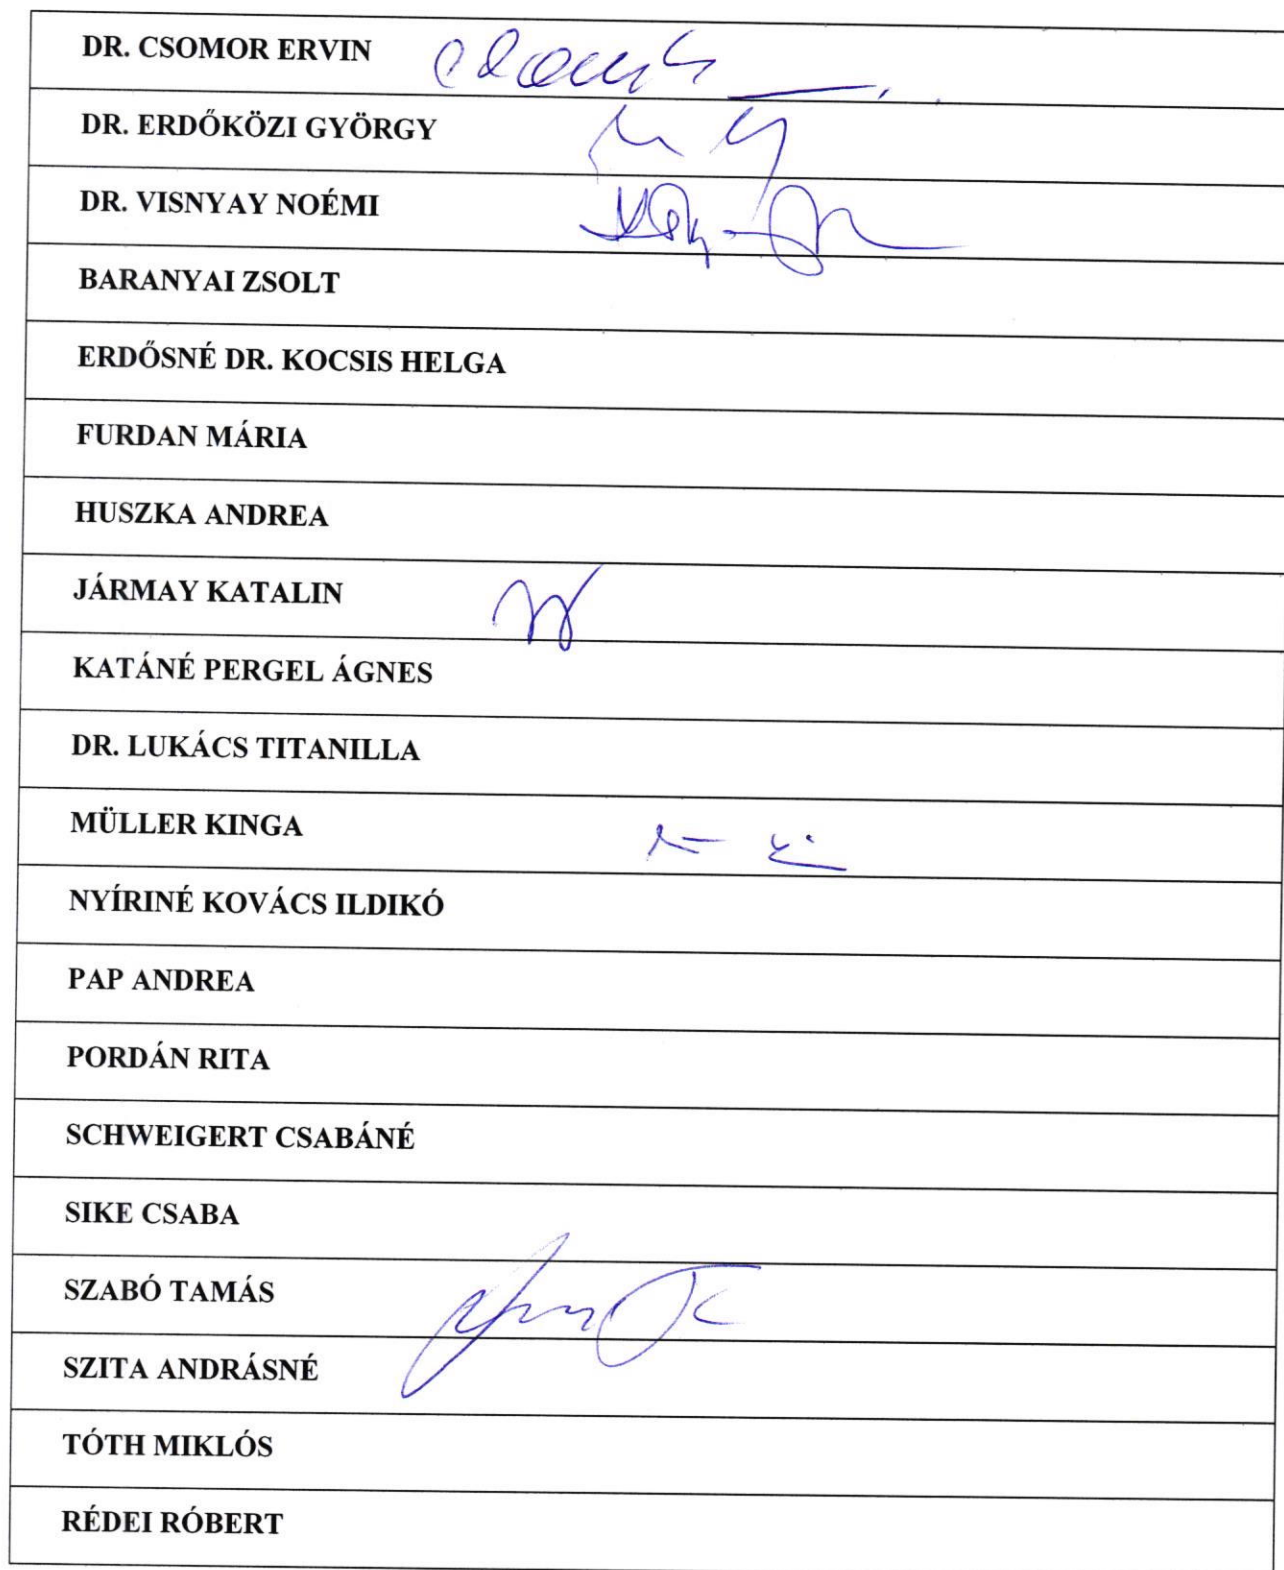 DR. CSOMOR ERVIN
DR. ERDŐKÖZI GYÖRGY
DR. VISNYAY NOÉMI
BARANYAI ZSOLT
ERDŐSNÉ DR. KOCSIS HELGA
FURDAN MÁRIA
HUSZKA ANDREA
JÁRMAY KATALIN
KATÁNÉ PERGEL ÁGNES
DR. LUKÁCS TITANILLA
MÜLLER KINGA
NYÍRINÉ KOVÁCS ILDIKÓ
PAP ANDREA
PORDÁN RITA
SCHWEIGERT CSABÁNÉ
SIKE CSABA
SZABÓ TAMÁS
SZITA ANDRÁSNÉ
TÓTH MIKLÓS
RÉDEI RÓBERT